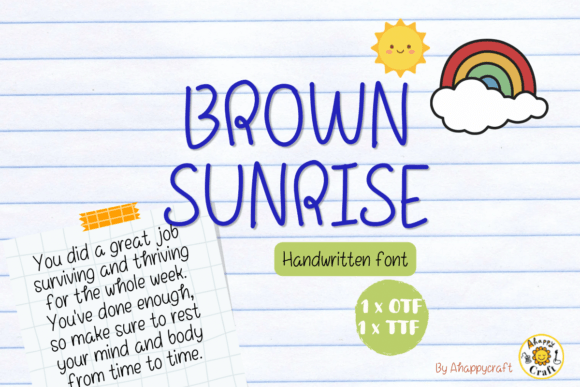 BROWN
SUNRISE
Handwritten font
1 x OTF
1 x TTF
You did a great job
surviving and thriving
for the whole week.
You've done enough,
so make sure to rest
your mind and body
from time to time.
By Ahappycraft
Ahappy
Craft